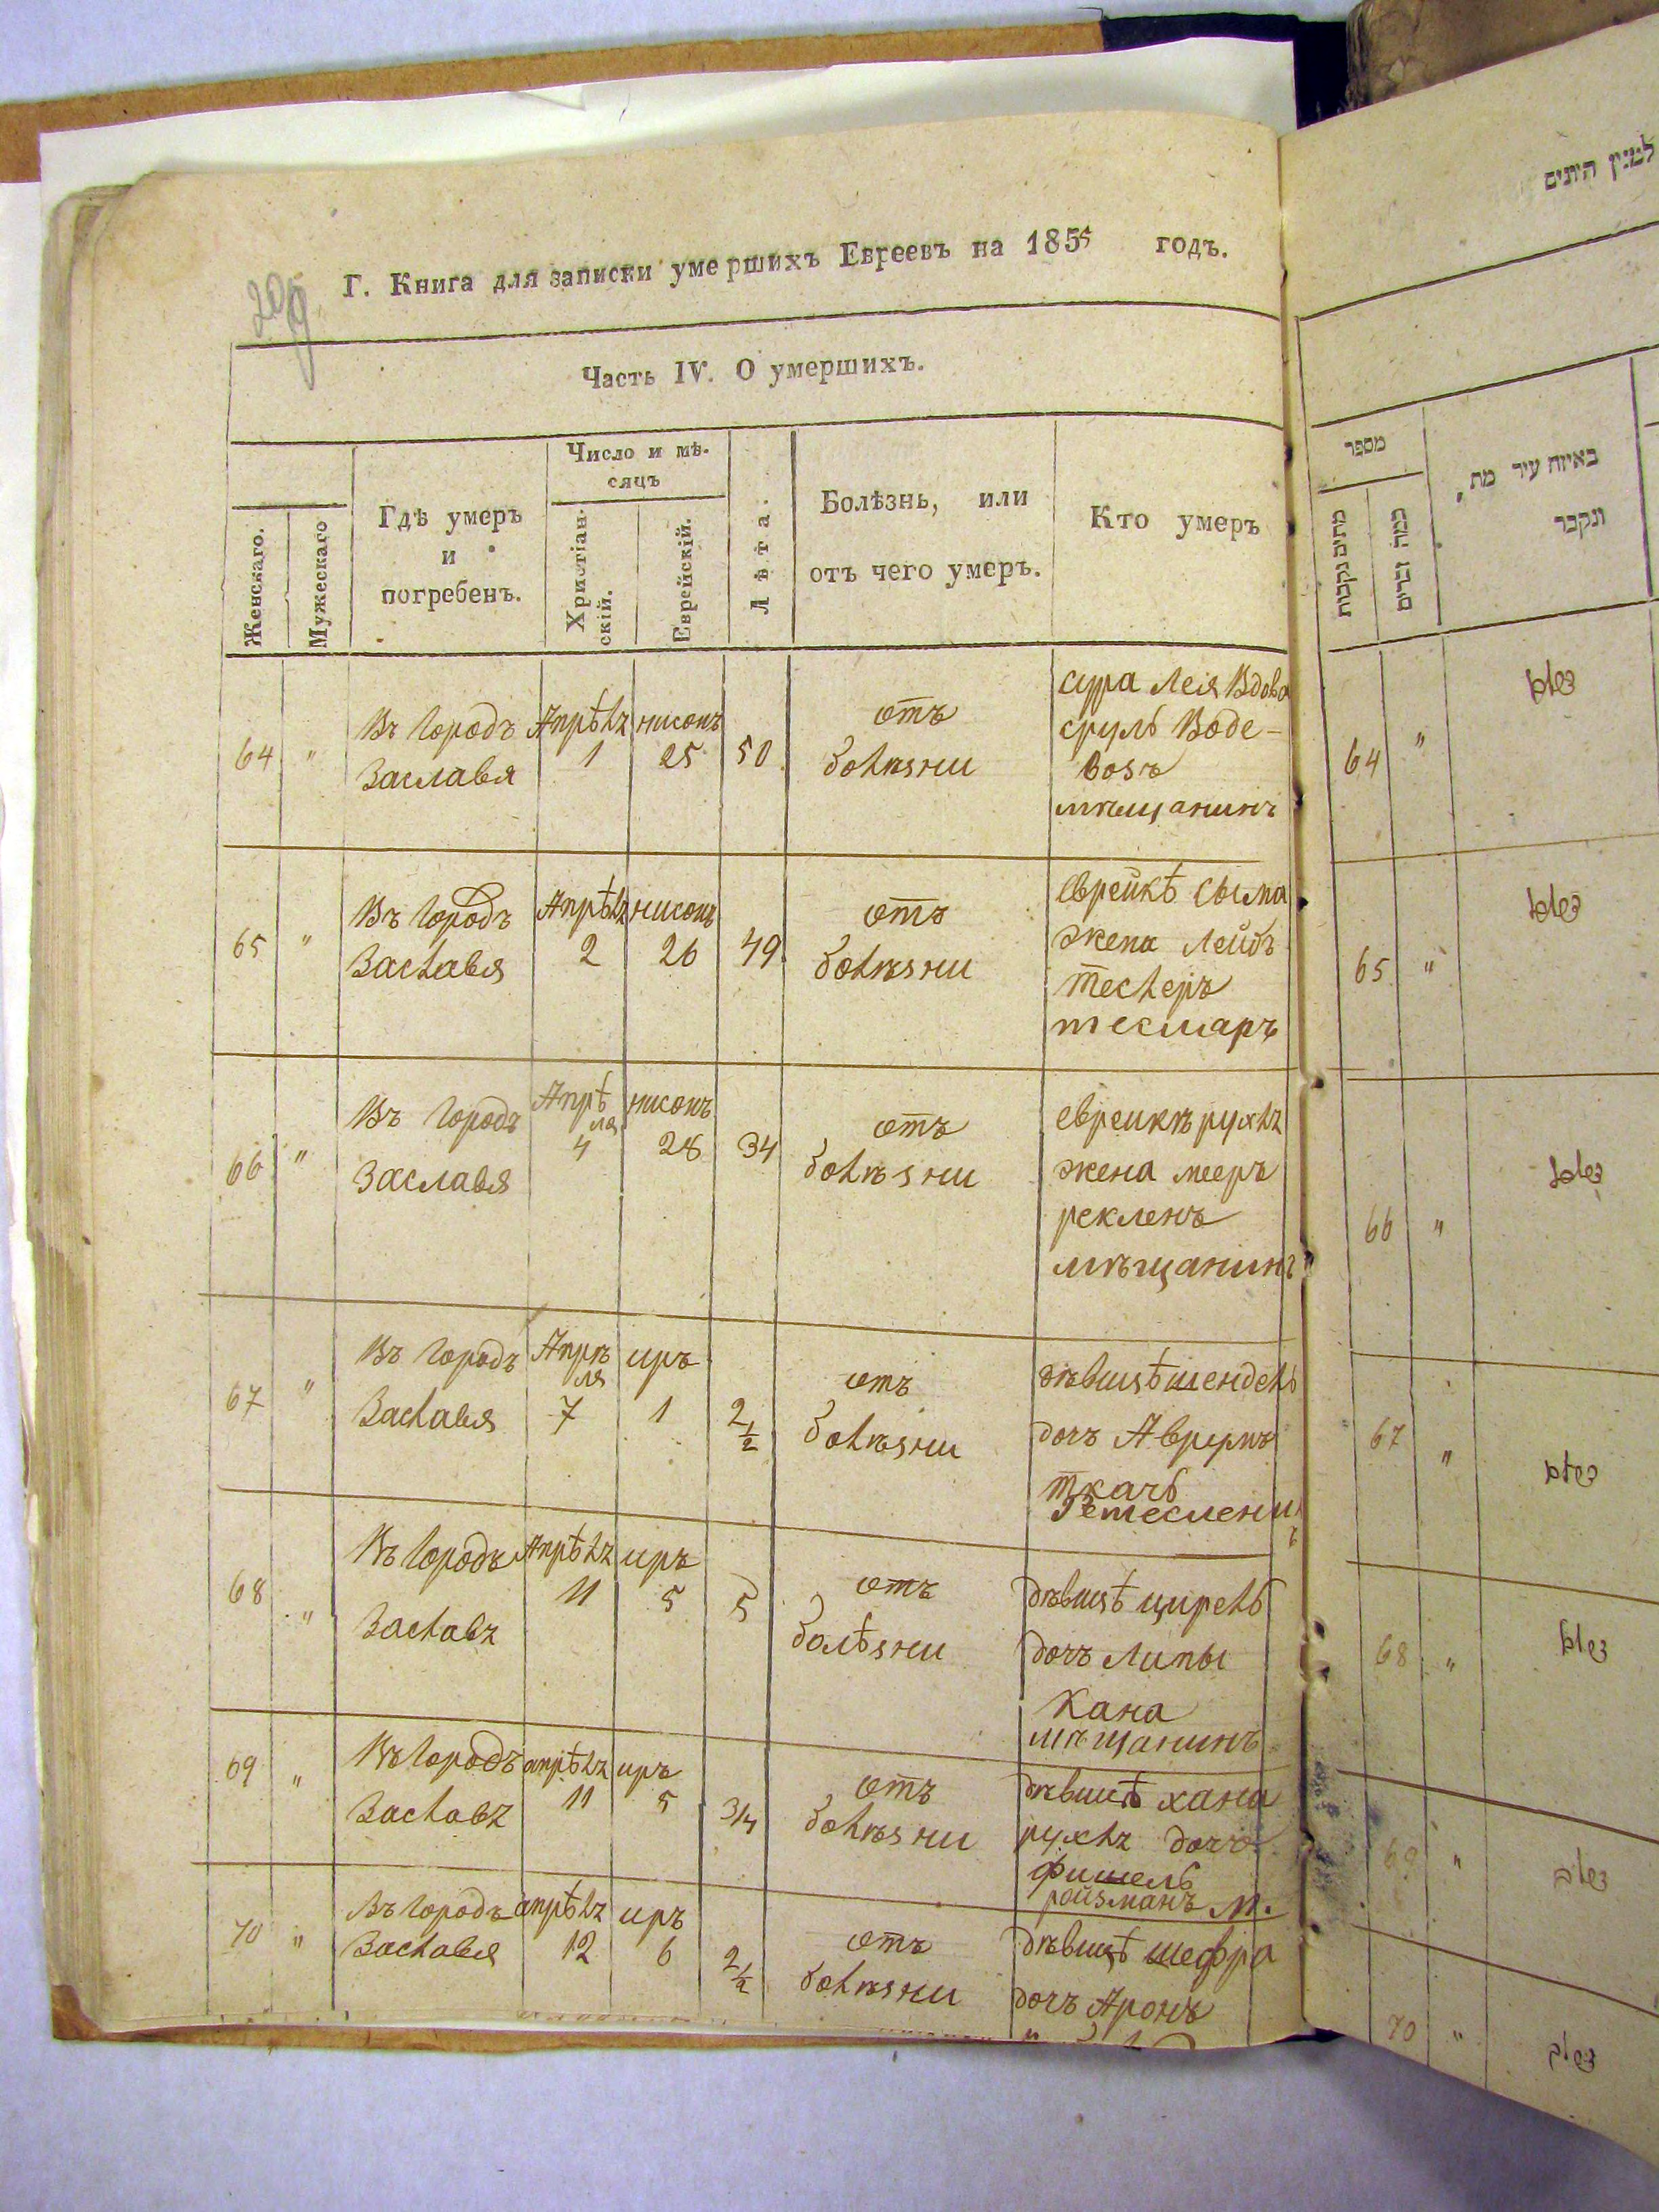 209
Г. Книга для записки умершихъ Евреевъ на 1855 годъ.
Часть IV. О умершихъ.
Женскаго.
Мужескаго
Гдѣ умеръ
и
погребенъ.
Число и мѣ-
сяцъ
Христіан-
скій.
Еврейскій.
Лѣта.
Болѣзнь, или
отъ чего умеръ.
Кто умеръ
64 " Въ Городъ Заславя Апрѣль 1 нисонъ 25 50 отъ болѣзни
сура Лея Вдова
сруль Воде-
возъ
мѣщанинъ
65 " Въ Городъ Заславя Апрѣль 2 нисонъ 26 49 отъ болѣзни
еврейкѣ Сыма
жена Лейбъ
теслеръ
66 " Въ Городъ Заславя Апрѣля 4 нисонъ 28 34 отъ болѣзни
евреикѣ рухль
жена мееръ
рекленъ
мѣщанинъ
67 " Въ Городъ Заславя Апрѣля 7 иръ 1 2 1/2 отъ болѣзни
дѣвицѣ шендель
дочъ Аврумъ
ткачь
Ремесленикъ
68 " Въ Городъ Заславъ Апрѣль 11 иръ 5 5 отъ болѣзни
дѣвицѣ цирель
дочъ Липы
Кана
мѣщанинъ
69 " Въ Городъ Заславъ апрѣль 11 иръ 5 3/4 отъ болѣзни
дѣвицѣ хана
рухль дочъ
фишель
ройзманъ м.
70 " Въ Городъ Заславя апрѣль 12 иръ 6 2 1/2 отъ болѣзни
дѣвицѣ шефра
дочъ Аронъ
למנין היונים
מספר
מתים נקבות
כמה זכרים
באיזה עיר מת,
ונקבר
64 "
65 "
66 "
67 "
68 "
69 "
70 "